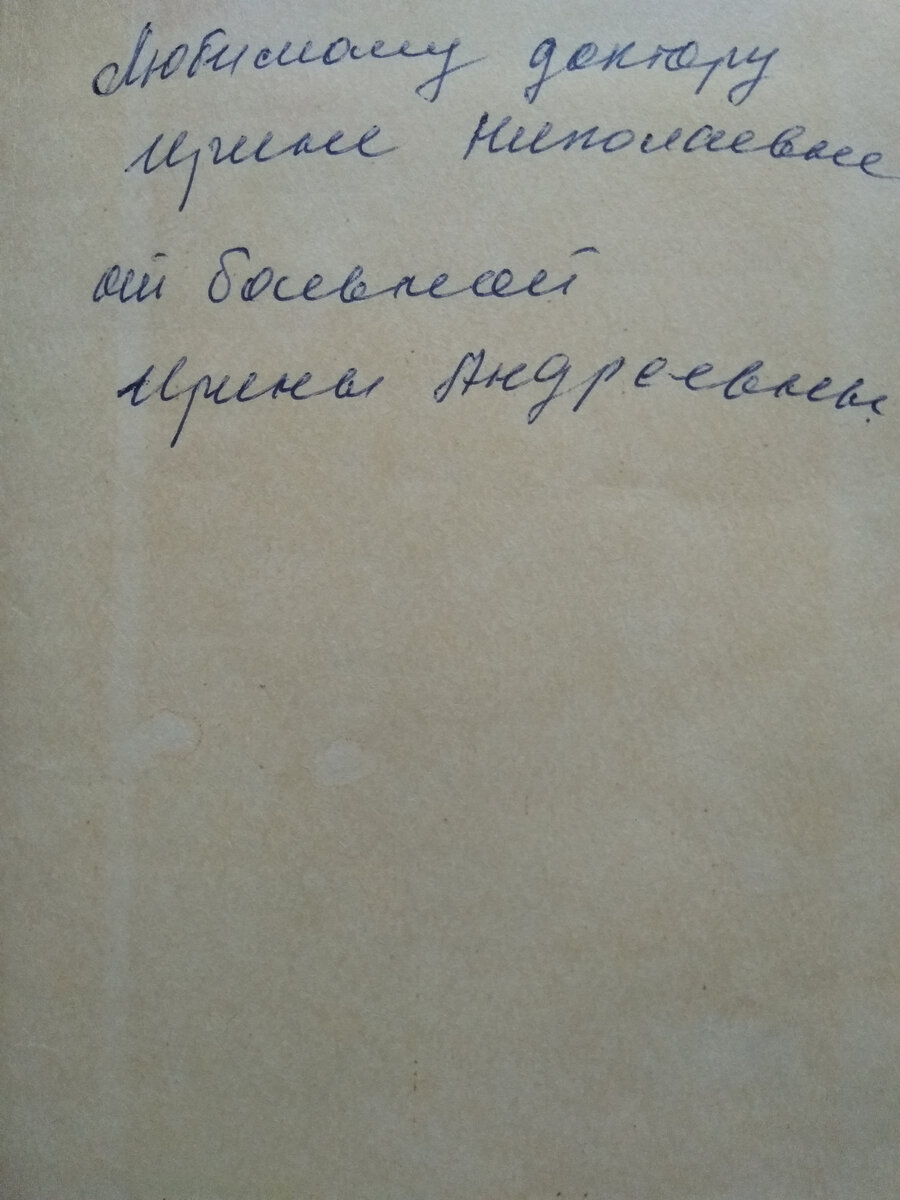 Любимому доктору
Ирине Николаевне
от больной
Ирины Андреевны.